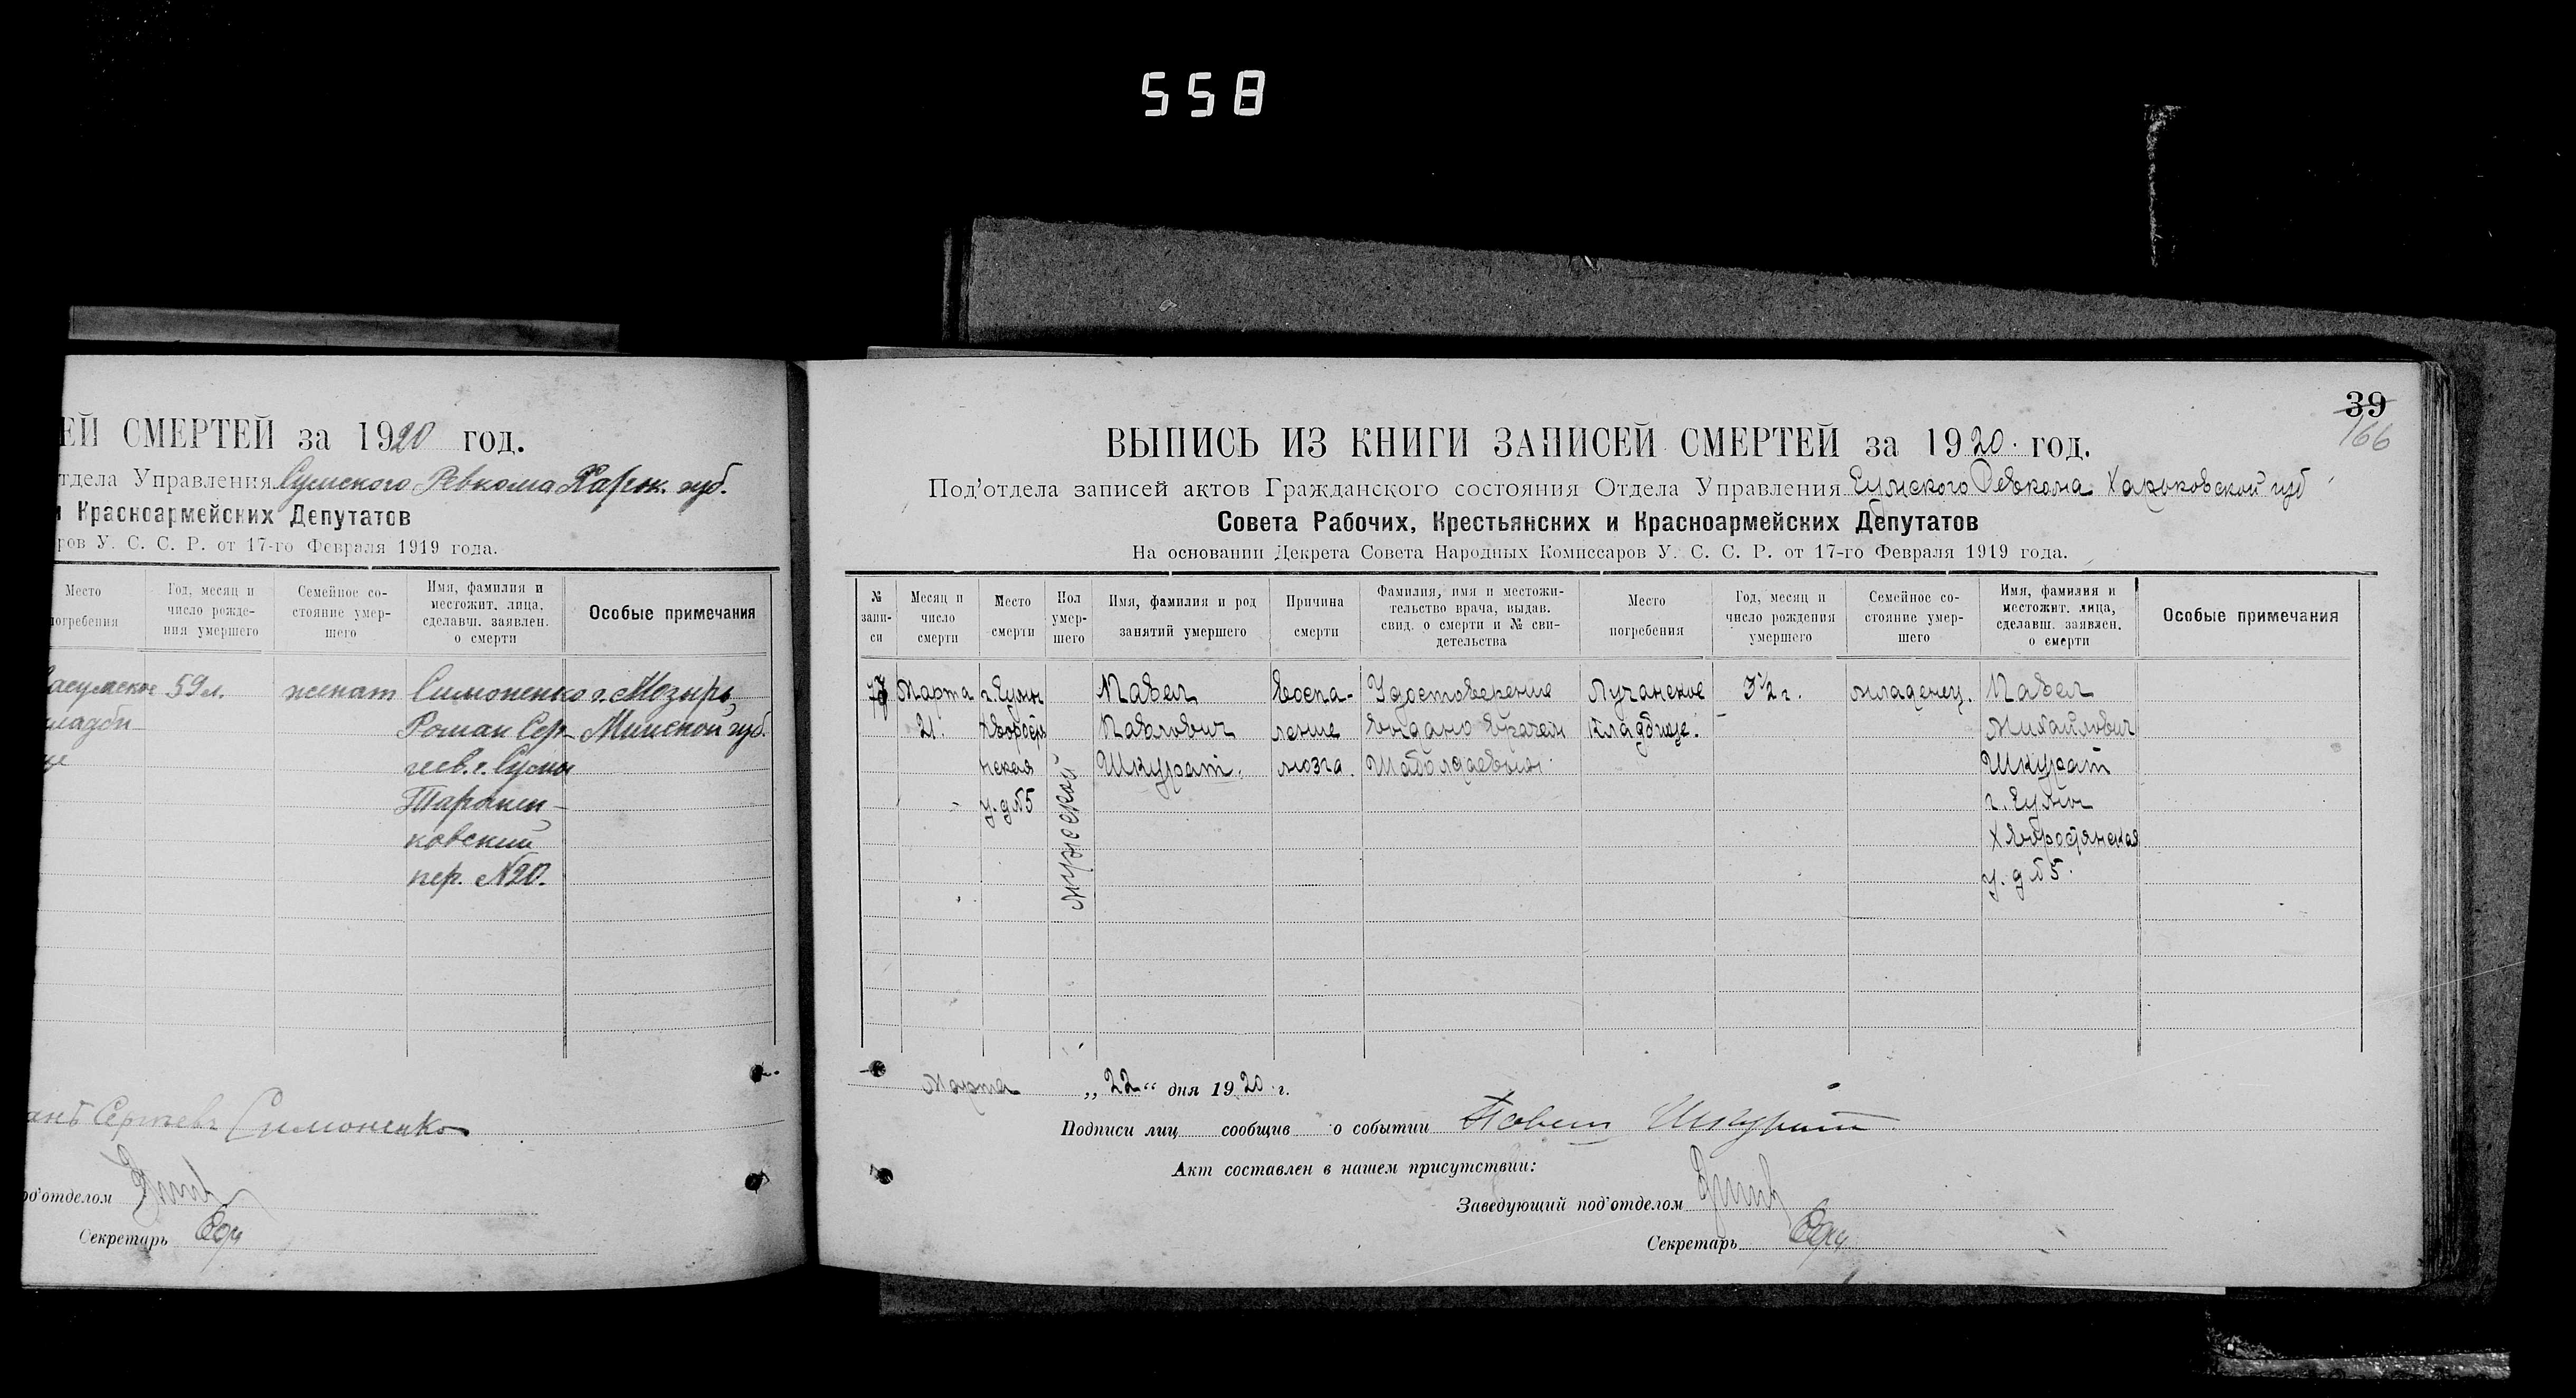 558
ЕЙ СМЕРТЕЙ за 1920 год.
тдела Управления Сумского Ревкома Харьк. губ.
и Красноармейских Депутатов
ров У. С. С. Р. от 17-го Февраля 1919 года.
Место погребения
Год, месяц и число рожде- ния умершего
Семейное со- стояние умер- шего
Имя, фамилия и местожит. лица, сделавш. заявлен. о смерти
Особые примечания
59 л. женат Симоненко г. Мозырь,
Роман Сер- Минской губ.
геев. г. Сумы
ковский
пер. №20.
Сергеевъ Симоненко
од'отделом
Секретарь
39
166
ВЫПИСЬ ИЗ КНИГИ ЗАПИСЕЙ СМЕРТЕЙ за 1920 год.
Под'отдела записей актов Гражданского состояния Отдела Управления Сумского Ревкома Харьковской губ
Совета Рабочих, Крестьянских и Красноармейских Депутатов
На основании Декрета Совета Народных Комиссаров У. С. С. Р. от 17-го Февраля 1919 года.
№ запи- си
Месяц и число смерти
Место смерти
Пол умер- шего
Имя, фамилия и род занятий умершего
Причина смерти
Фамилия, имя и местожи- тельство врача, выдав. свид. о смерти и № сви- детельства
Место погребения
Год, месяц и число рождения умершего
Семейное со- стояние умер- шего
Имя, фамилия и местожит. лица, сделавш. заявлен. о смерти
Особые примечания
Марта г. Сумы Павел Воспа- Удостоверение Лучанское 3 1/2 г. младенец. Павел
21. Павлович ление выдано врачем Кладбище. Михайлович
нская Шкурат. мозга. Шкурат
у. д №5 г. Сумы
мужской
у. д №5.
Марта „22“ дня 1920 г.
Подписи лиц сообщив о событии Павел Шкурат
Акт составлен в нашем присутствии:
Заведующий под'отделом
Секретарь